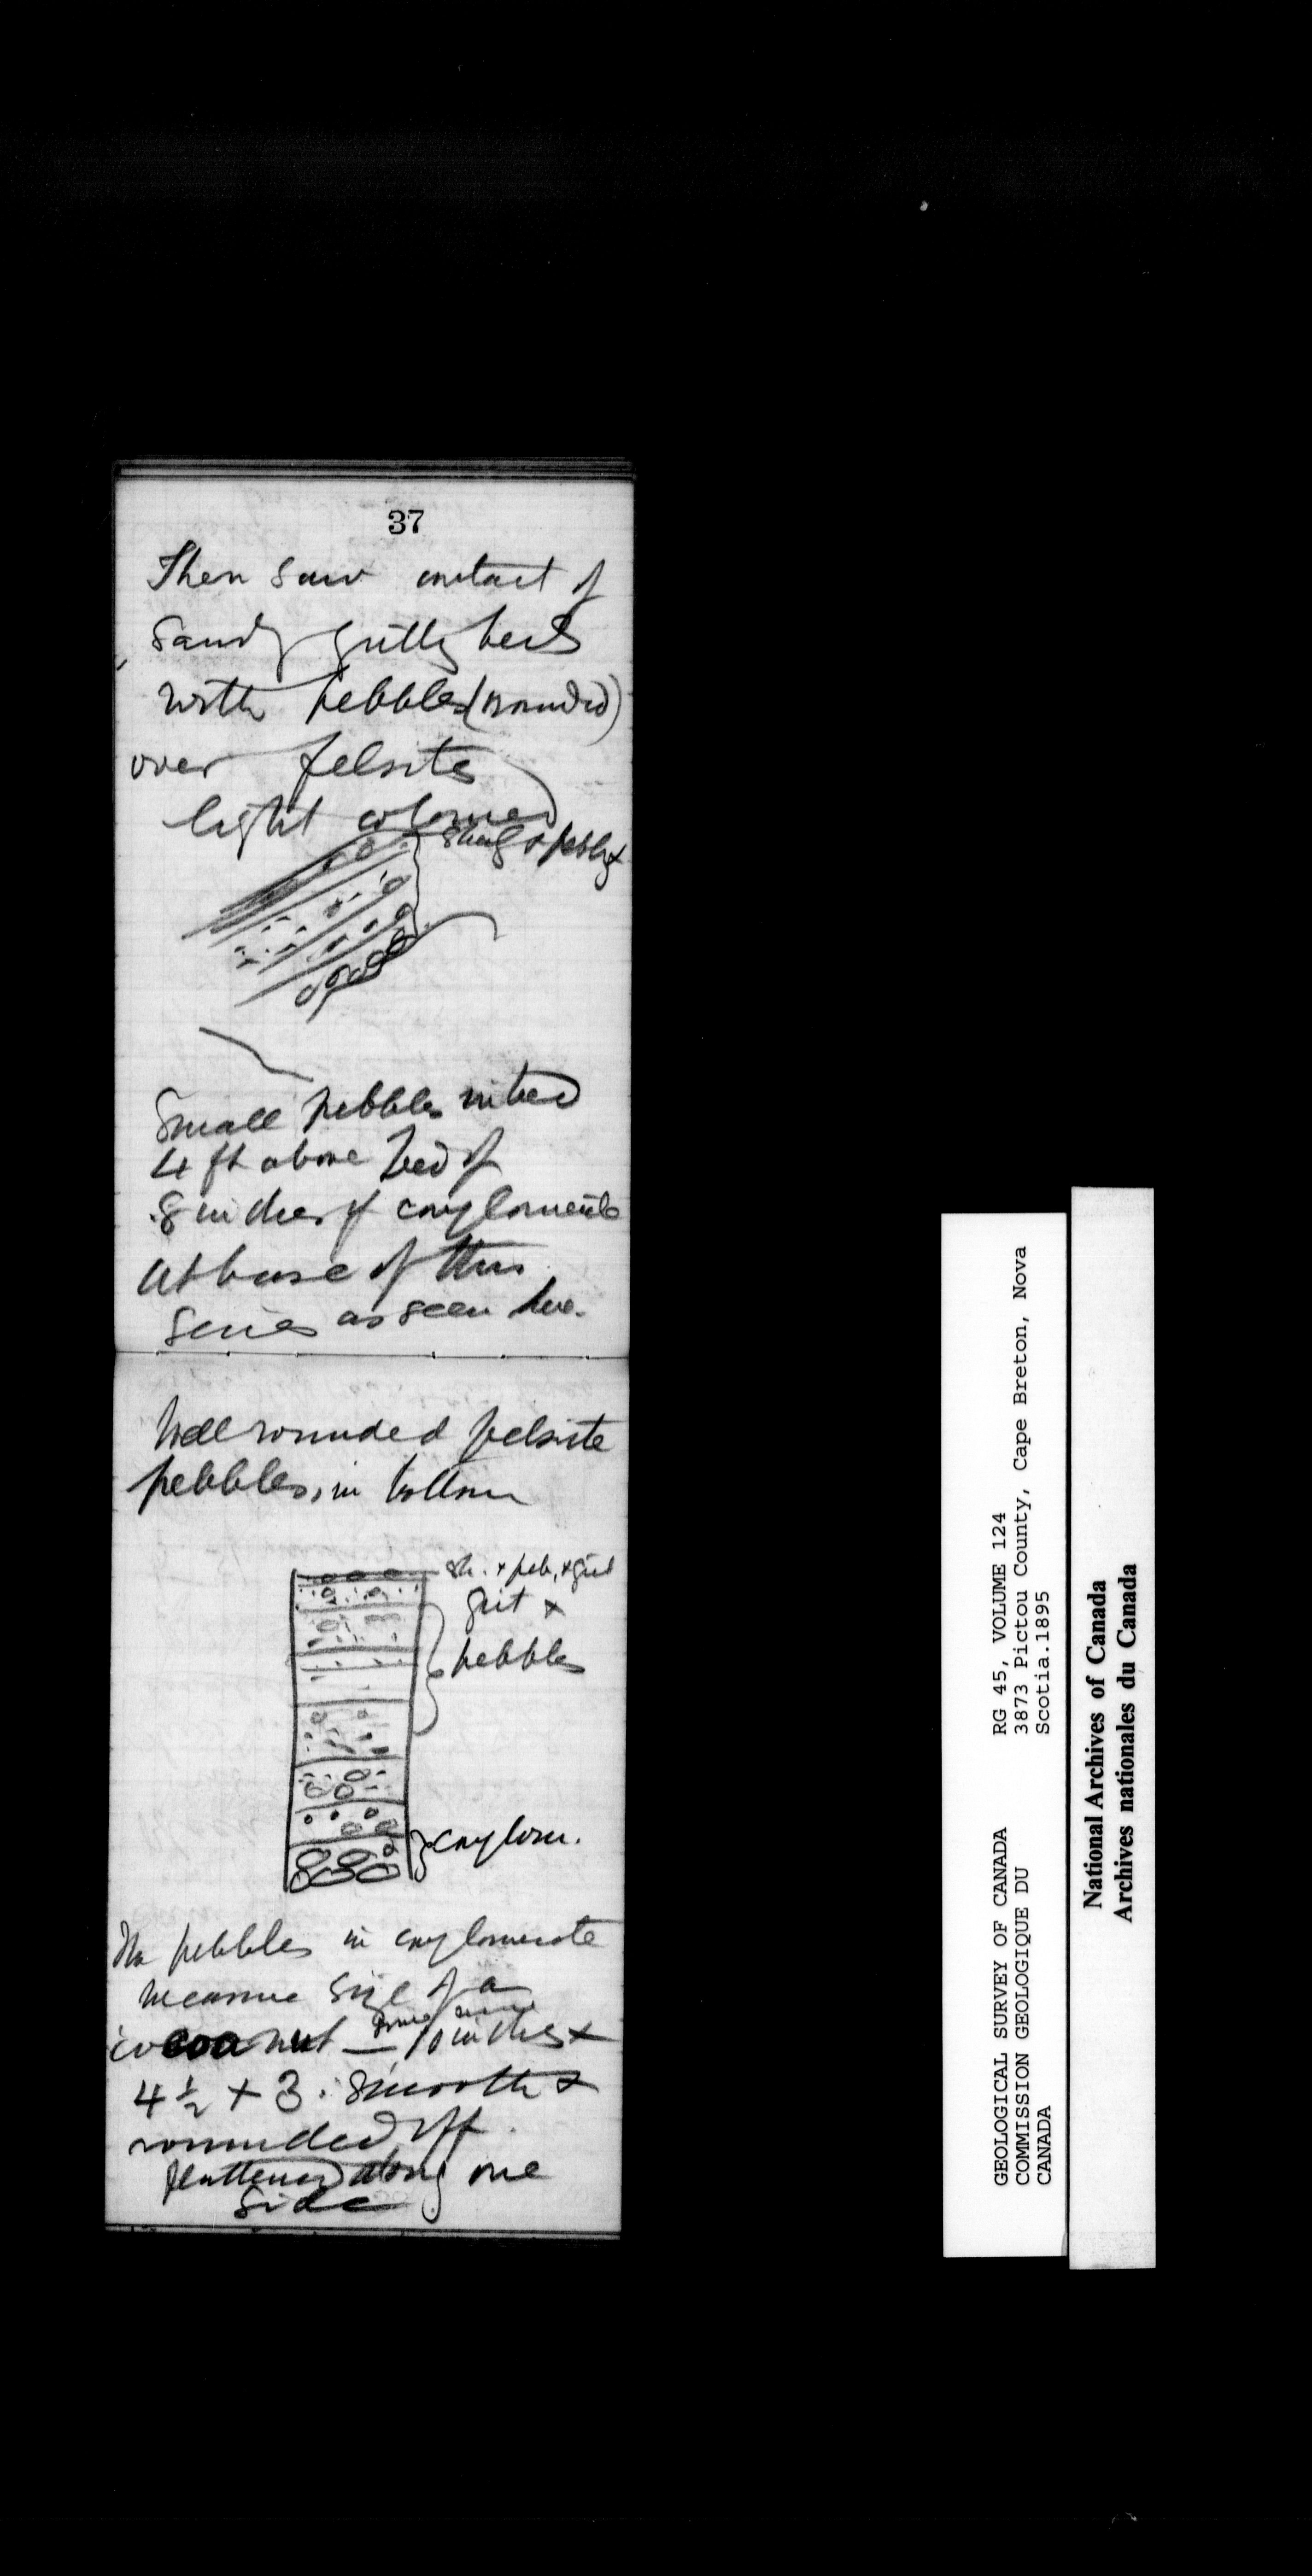 37
Then saw contact of
Sandy gritty beds
with pebbles (rounded)
over felsites
light coloured
shaly & pebbly
Small pebbles in bed
4 ft above bed of
8 inches of conglomerate
at base of this
series as seen here.
Well rounded felsite
pebbles, in bottom
sh. & peb, & grit
grit &
pebbles
conglom.
The pebbles in conglomerate
measure size of a
cocoanut — some 10 inches x
4 1/2 x 3. smooth &
rounded off
flattened along one
side
GEOLOGICAL SURVEY OF CANADA
COMMISSION GEOLOGIQUE DU
CANADA
RG 45, VOLUME 124
3873 Pictou County, Cape Breton, Nova
Scotia.1895
National Archives of Canada
Archives nationales du Canada